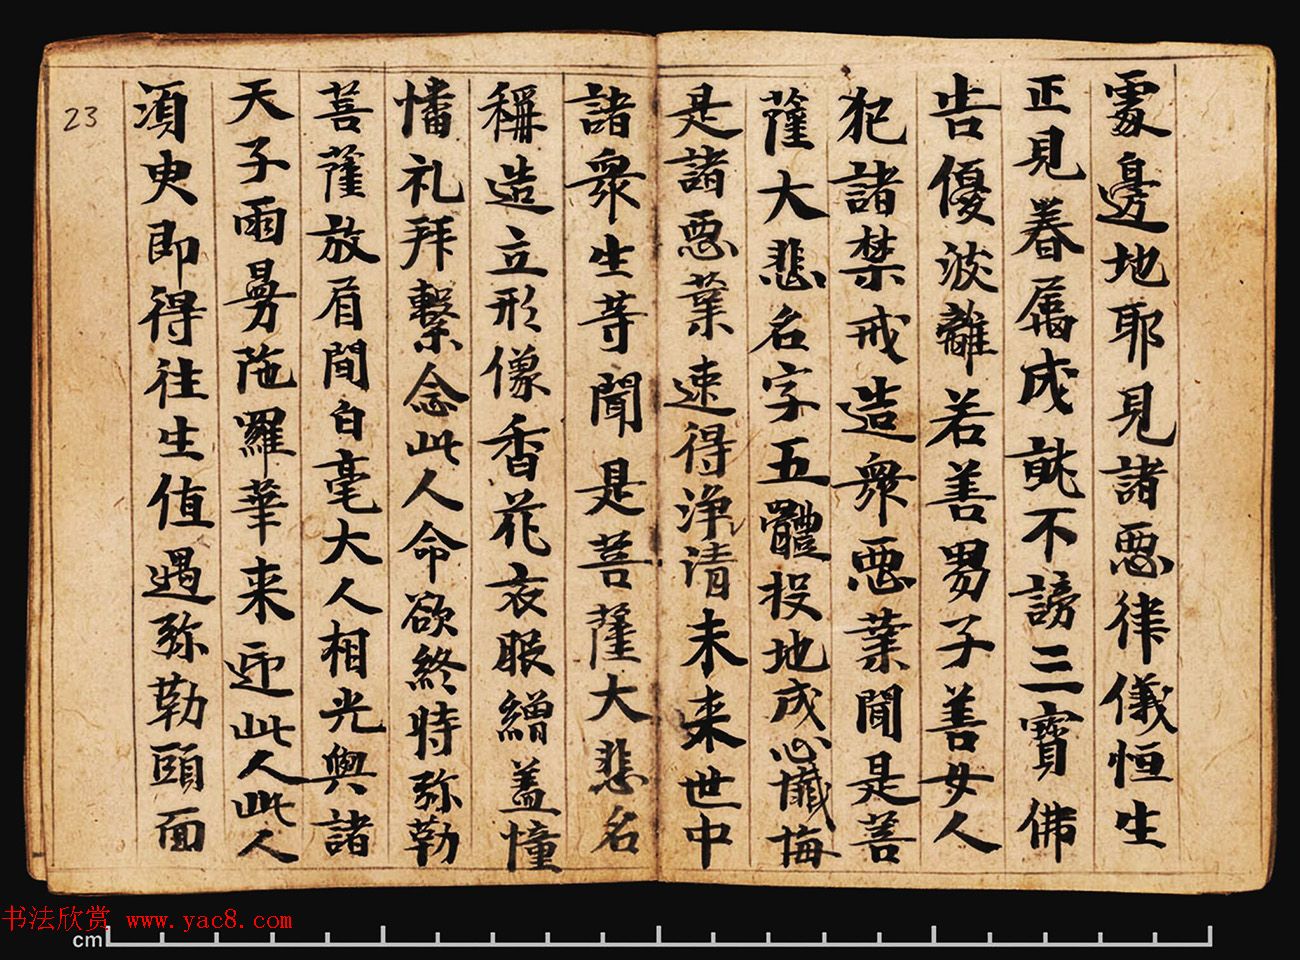 處邊地耶見諸惡律儀恒生
正見眷屬成就不謗三寶佛
告優波離若善男子善女人
犯諸禁戒造衆惡業聞是菩
薩大悲名字五體投地成心懺悔
是諸惡業速得淨清未来世中
諸衆生等聞是菩薩大悲名
稱造立形像香花衣服繒蓋幢
幡礼拜繫念此人命欲終時弥勒
菩薩放眉間白毫大人相光與諸
天子雨曼陁羅華来迎此人此人
須臾即得往生值遇弥勒頭面
23
书法欣赏 www.yac8.com
cm